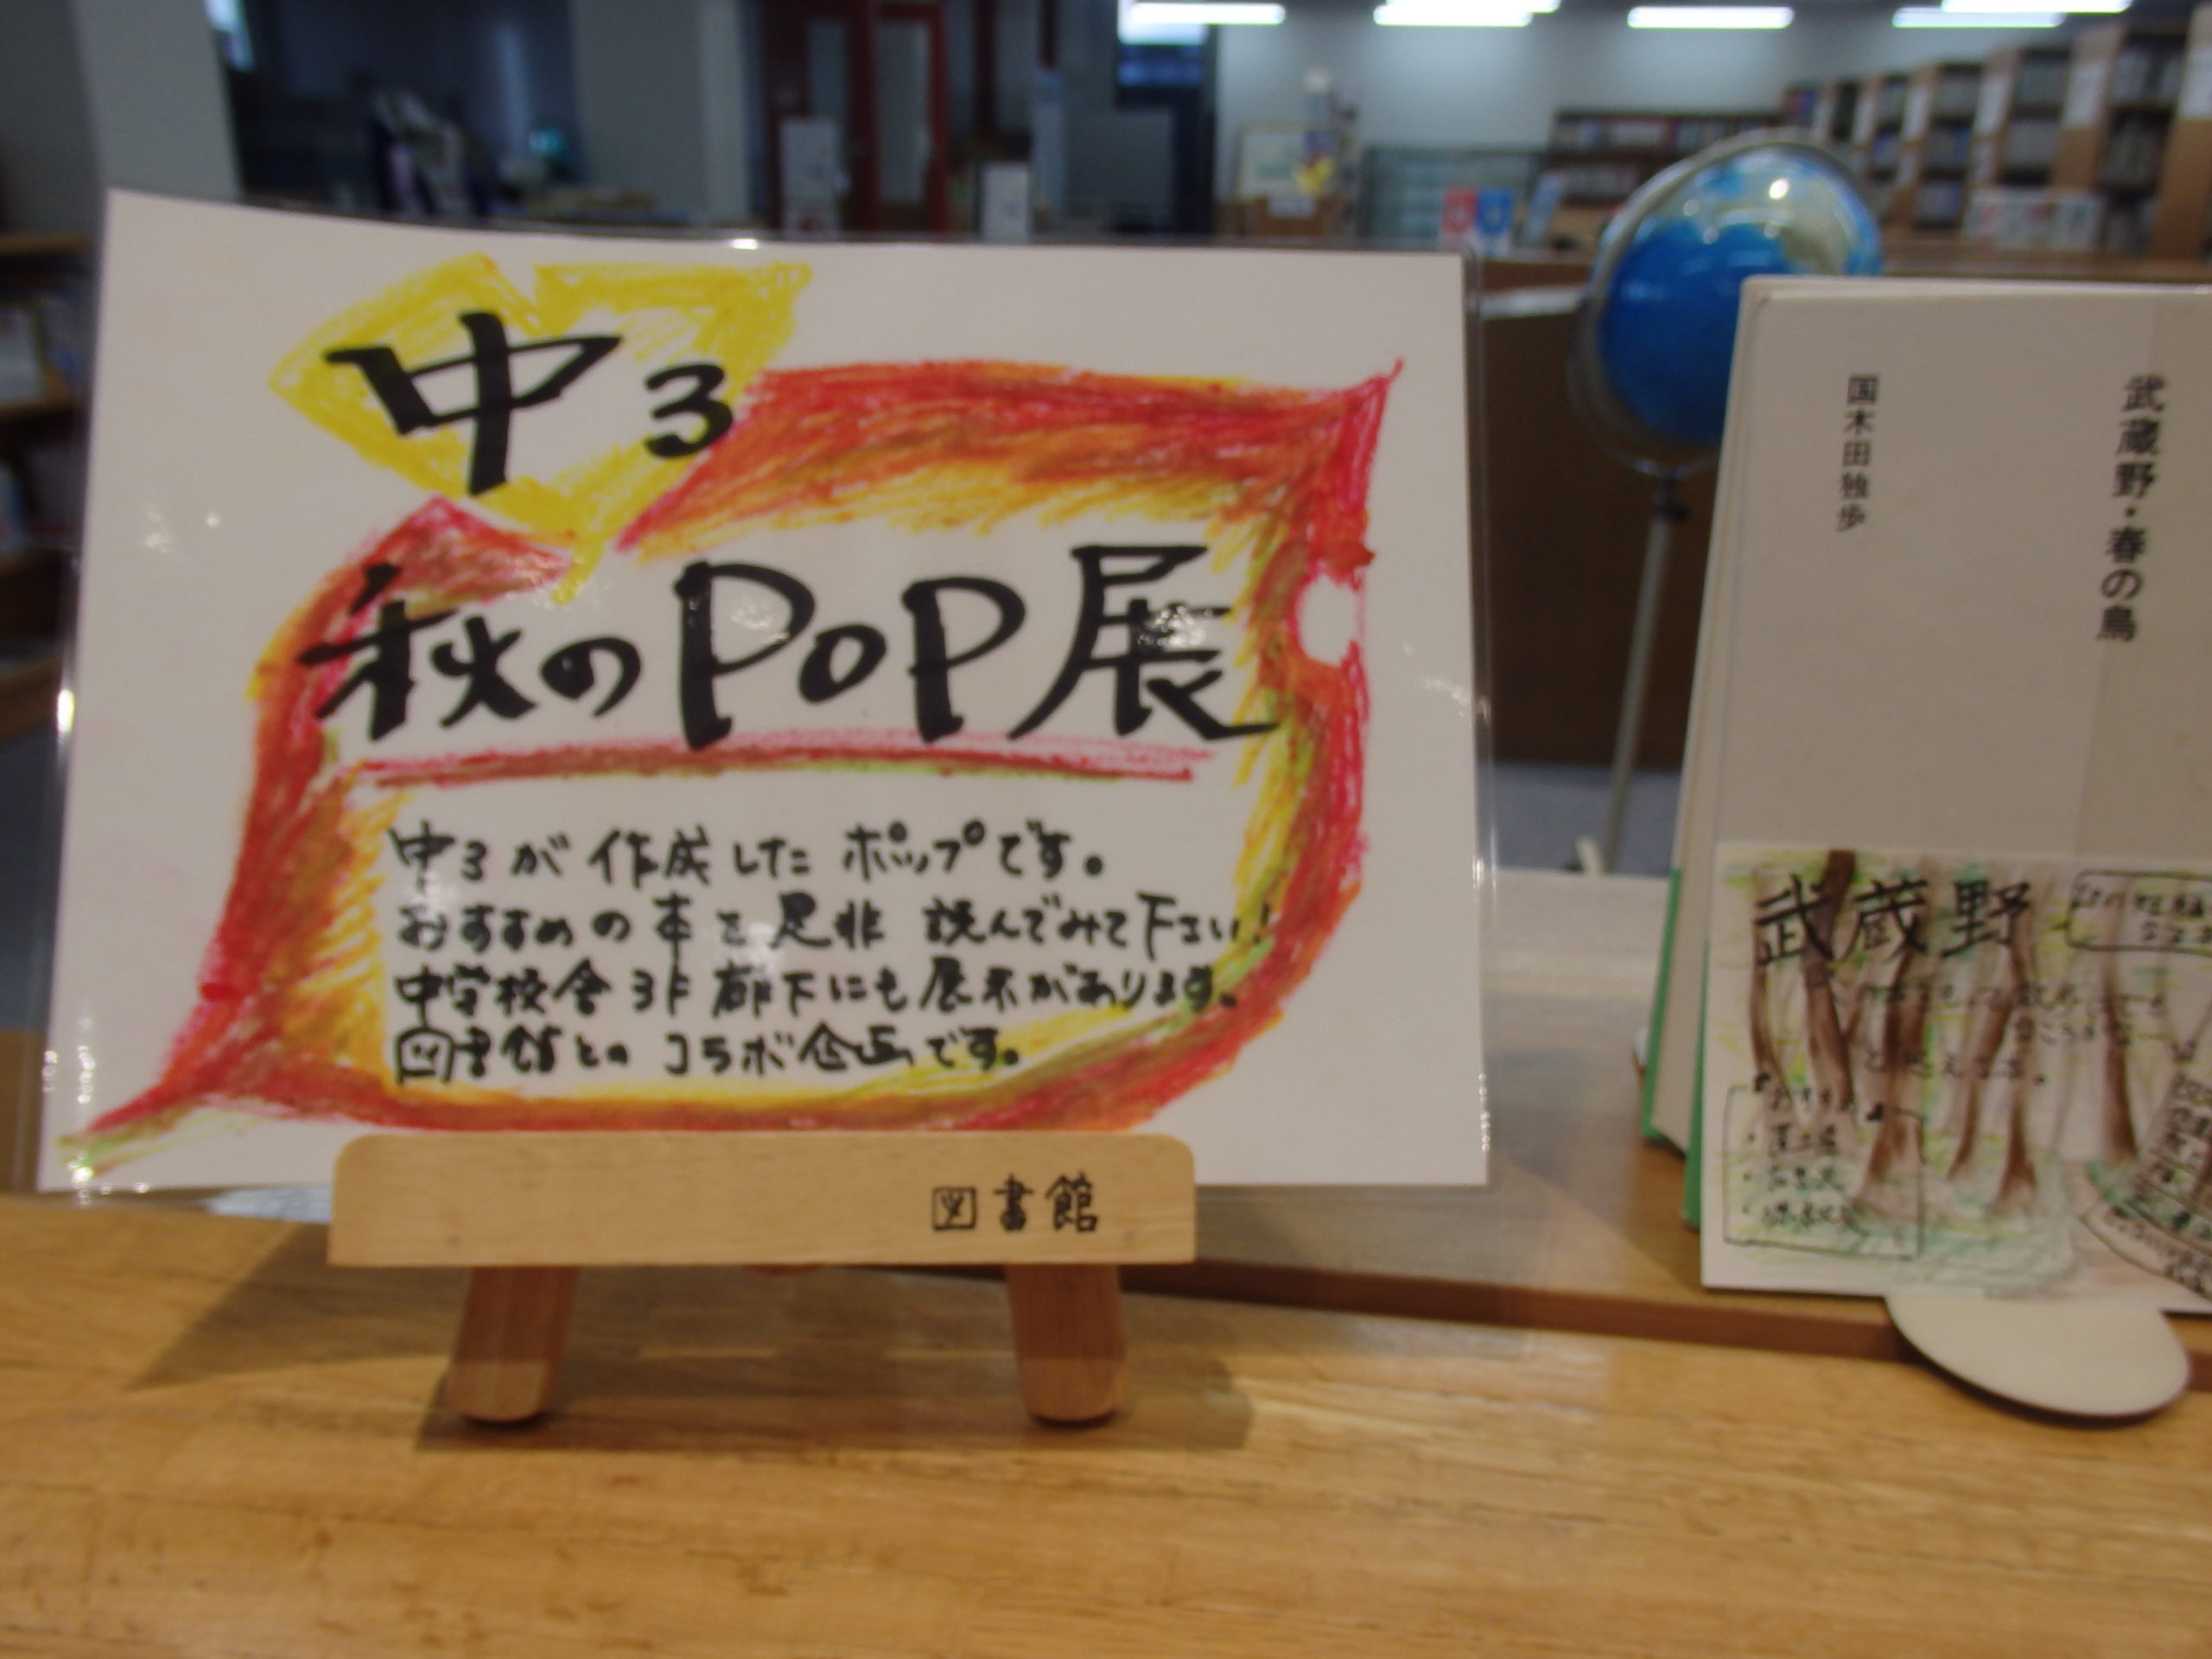 中3
秋のPOP展
中3が作成したポップです。
おすすめの本を是非読んでみて下さい!
中学校舎3F廊下にも展示があります。
図書館とのコラボ企画です。
図書館
武蔵野・春の鳥
国木田独歩
武蔵野